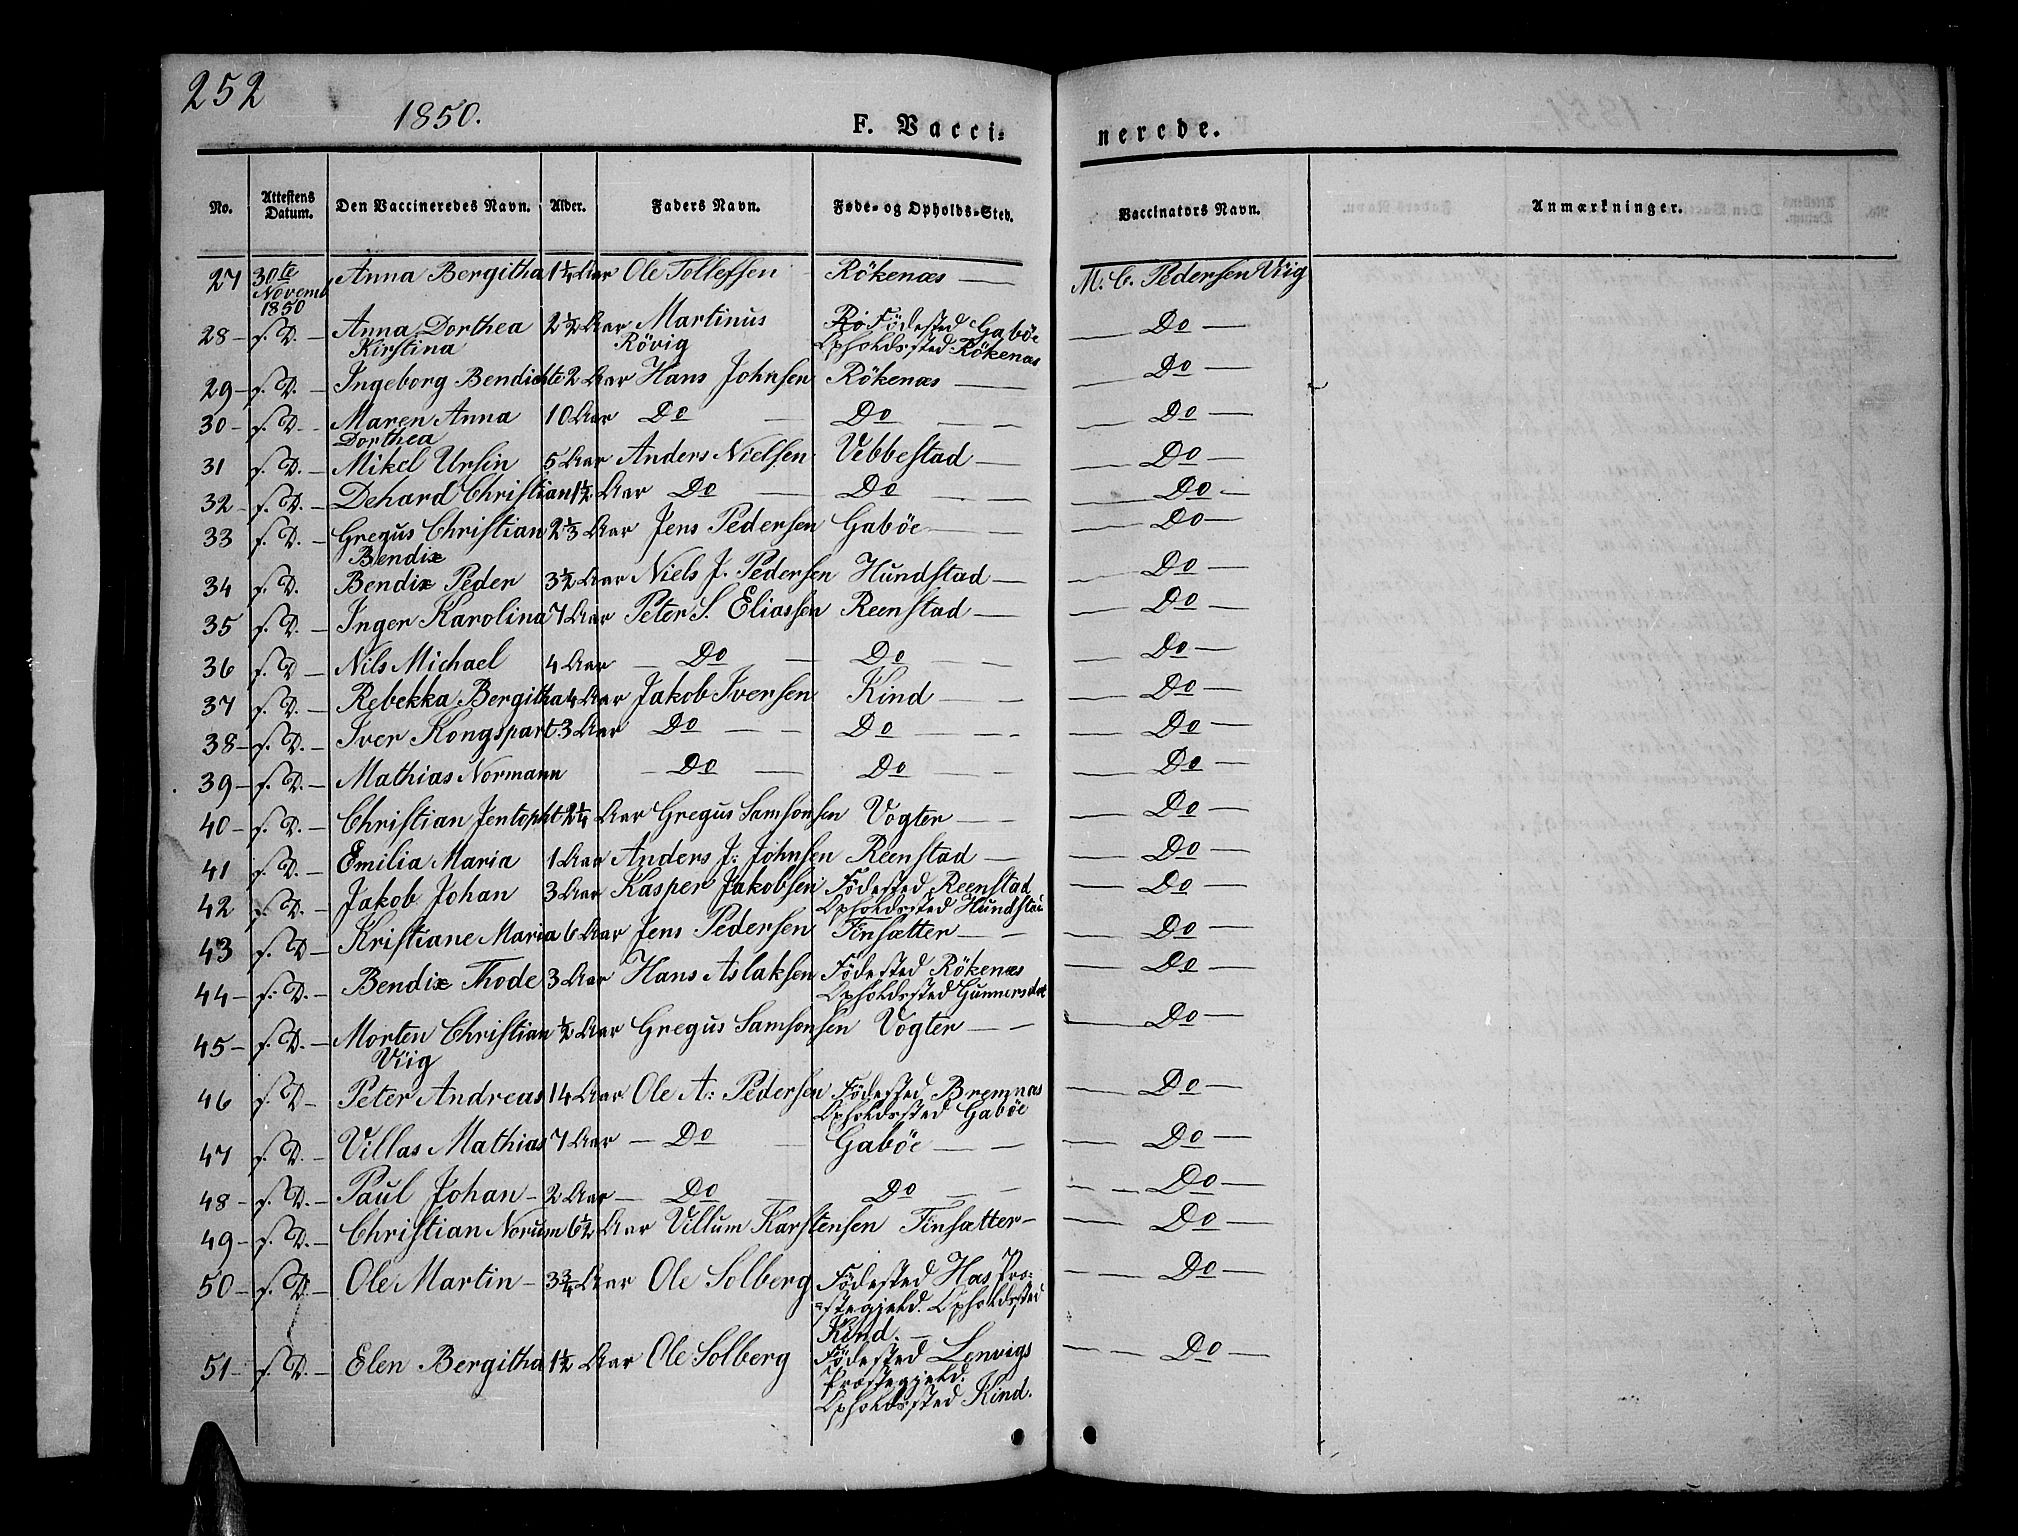 252
1850.
F. Vacci-
nerede.
No. Attestens Datum. Den Vaccineredes Navn. Alder. Faders Navn. Føde- og Opholds-Sted. Vaccinators Navn. Anmærkninger.
27 30te Novemb 1850 Anna Bergitha 1¼ Aar Ole Tollefsen - Rökenæs — M. C. Pedersen Viig
28 - f. D. - Anna Dorthea Kirstina 2½ Aar Martinus Rövig Rö Födested Gaböe Opholdssted Rökenæs — Do —
29 - f. D. - Ingeborg Bendichte 2 Aar Hans Johnsen Rökenæs — — Do —
30 - f. D. - Maren Anna Dorthea 10 Aar Do — Do — — Do —
31 f. D. - Mikel Ursin 5 Aar Anders Nielsen Vebbestad — — Do —
32 - f. D. - Dehard Christian 1½ Aar Do — Do — — Do —
33 f. D. - Gregus Christian Bendix 2⅓ Aar Jens Pedersen Gaböe — — Do —
34 f. D. Bendix Peder 3½ Aar Niels J. Pedersen Hundstad — — Do —
35 f. D. - Inger Karolina 7 Aar Peter S. Eliassen Reenstad — — Do —
36 f. D - Nils Michael 4 Aar — Do — Do — — Do —
37 f. D. - Rebekka Bergitha 4 Aar Jakob Iversen Kind — — Do —
38 - f. D. - Iver Kongspart 3 Aar Do — Do — — Do —
39 - f. D. - Mathias Normann — Do — Do — — Do —
40 - f. D. - Christian Jentopht 2¼ Aar Gregus Samsonsen Vogter — — Do —
41 f. D. - Emilia Maria 1 Aar Anders J. Johnsen Reenstad — — Do —
42 f. D. - Jakob Johan 3 Aar Kasper Jakobsen Födested Reenstad Opholdssted Hundstad — Do —
43 f. D - Kristiane Maria 6 Aar Jens Pedersen Finsætter — — Do —
44 - f. D. - Bendix Thode 3 Aar Hans Aslaksen Födested Rökenæs Opholdssted — Do —
45 - f. D. - Morten Christian Viig ½ Aar Gregus Samsonsen Vogter — — Do —
46 f. D - Peter Andreas 14 Aar Ole A: Pedersen Födested Bremnæs Opholdssted Gaböe — Do —
47 f. D. - Villas Mathias 7 Aar — Do Gaböe — — Do —
48 - f. D. - Paul Johan - 2 Aar — Do Do — — Do —
49 - f. D. - Christian Norum 6½ Aar Villum Karstensen Finsætter - — Do —
50 - f. D. - Ole Martin - 3¾ Aar Ole Solberg Födested Has Præ-
=stegjeld. Opholdssted
Kind. — — Do —
51 - f. D. - Elen Bergitha 1½ Aar Ole Solberg Födested Lenvigs
Præstegjeld.
Opholdssted Kind. — Do —